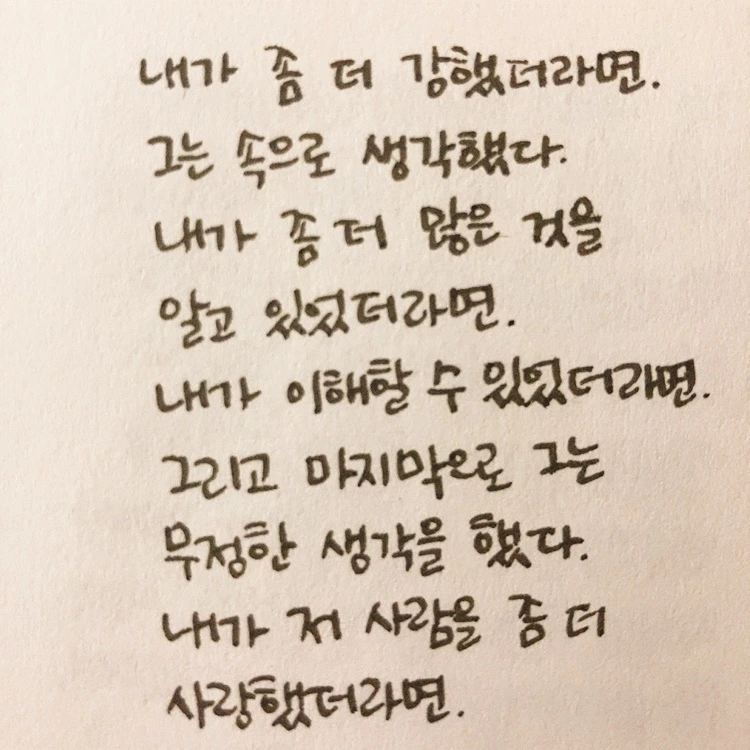 내가 좀 더 강했더라면.
그는 속으로 생각했다.
내가 좀 더 많은 것을
알고 있었더라면.
내가 이해할 수 있었더라면.
그리고 마지막으로 그는
무정한 생각을 했다.
내가 저 사람을 좀 더
사랑했더라면.